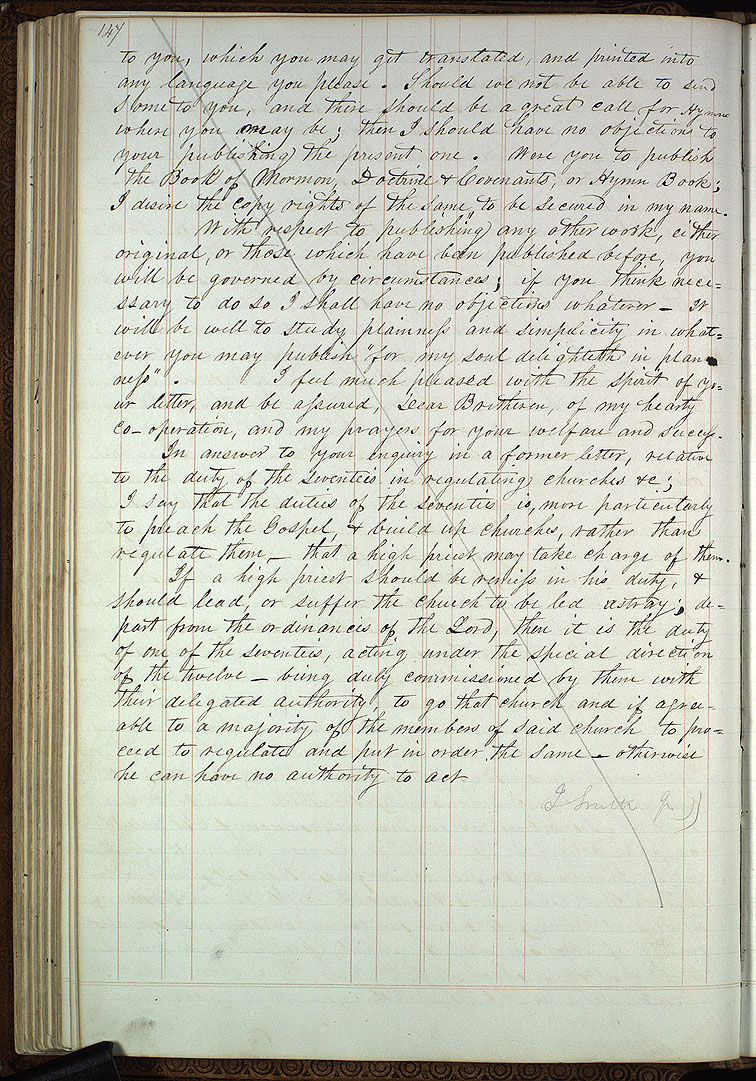 147
to you, which you may get translated, and printed into
any language you please. Should we not be able to send
some to you, and there should be a great call for Hymns
where you may be; then I should have no objections to
your publishing the present one. Were you to publish
the Book of Mormon, Doctrine & Covenants, or Hymn Book;
I desire the copy rights of the same to be secured in my name.
With respect to publishing any other work, either
original, or those which have been published before, you
will be governed by circumstances; if you think nece=
ssary to do so I shall have no objections whatever — It
will be well to study plainness and simplicity in what=
ever you may publish "for my soul delighteth in plain
ness". I feel much pleased with the spirit of yo=
ur letter, and be assured, Dear Bretheren, of my hearty
co-operation, and my prayers for your welfare and success.
In answer to your enquiry in a former letter, relative
to the duty of the seventies in regulating churches &c;
I say that the duties of the seventies is, more particularly
to preach the Gospel, & build up churches, rather than
regulate them — that a high priest may take charge of them.
If a high priest should be remiss in his duty, &
should lead, or suffer the church to be led astray; de=
part from the ordinances of the Lord, then it is the duty
of one of the seventies, acting under the special direction
of the twelve — being duly commissioned by them with
their delegated authority to go that church and if agree=
able to a majority of the members of said church to pro=
ceed to regulate and put in order the same — otherwise
he can have no authority to act
J Smith Jr ))